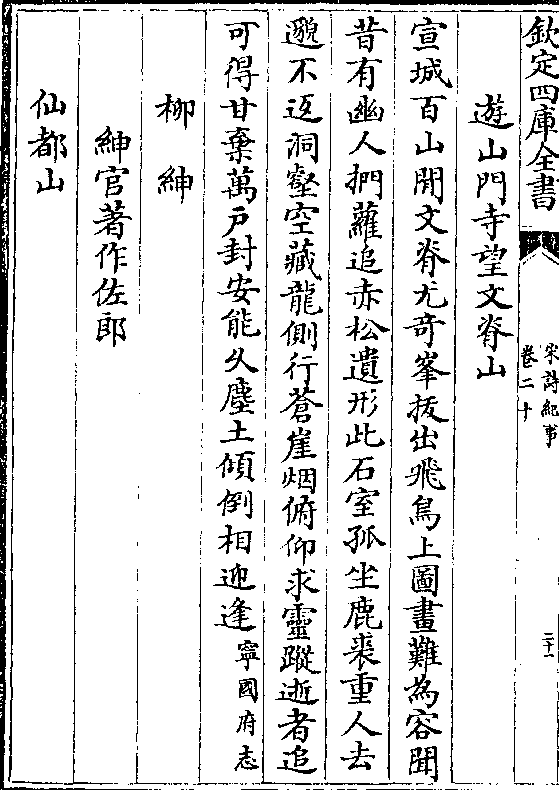 欽定四庫全書
宋詩紀事
卷二十
二十一
遊山門寺望文脊山
宣城百山閒文脊尤奇峯拔出飛鳥上圖畫難為容聞
昔有幽人捫蘿追赤松遺形此石室孤坐鹿裘重人去
邈不返洞壑空藏龍側行蒼崖烟俯仰求靈蹤逝者追
可得甘棄萬戶封安能久塵土傾倒相迎逢寧國府志
柳紳
紳官著作佐郎
仙都山